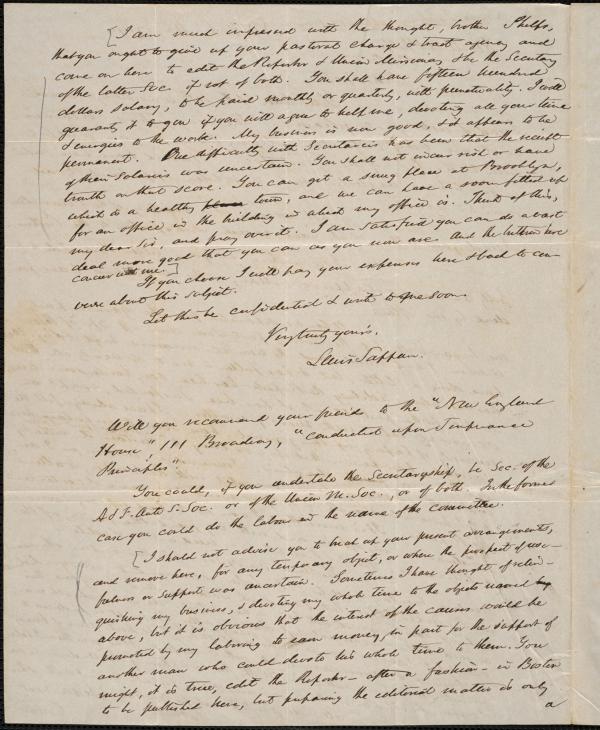 [I am much impressed with the thought, brother Phelps,
that you ought to give up your pastoral charge & tract agency and
come on here to edit the Reporter & Union Missionary & be the Secretary
of the latter Soc. if not of both. You shall have fifteen hundred
dollars salary, to be paid monthly or quarterly, with punctuality. I will
guaranty it to you if you will agree to help me, devoting all your time
& energies to the work. My business is now good, & it appears to be
permanent. One difficulty with Secretaries has been that the receipt
of their salaries was uncertain. You shall not incur risk or have
trouble on that score. You can get a snug place at Brooklyn,
which is a healthy place town, and we can have a room fitted up
for an office in the building in which my office is. Think of this,
my dear Sir, and pray over it. I am satisfied you can do a vast
deal more good that you can as you now are. And the brethren here
concur with me.]
If you choose I will pay your expenses here & back to con-
verse about this subject.
Let this be confidential & write to me soon.
Very truly yours,
Lewis Tappan.
Will you recommend your friends to the "New England
House", 111 Broadway, "conducted upon Temperance
Principles".
You could, if you undertake the Secretaryship, be Sec. of the
A & F. Anti S. Soc. or of the Union M. Soc., or of both. In the former
case you could do the labour in the name of the committee.
[I should not advise you to break up your present arrangements,
and remove here, for any temporary object, or where the prospect of use-
fulness or support was uncertain. Sometimes I have thought of relin-
quishing my business, & devoting my whole time to the objects named
above, but it is obvious that the interest of the causes would be
promoted by my laboring to earn money, in part for the support of
another man who could devote his whole time to them. You
might, it is true, edit the Reporter – after a fashion – in Boston
to be published here, but preparing the editorial matter is only
a